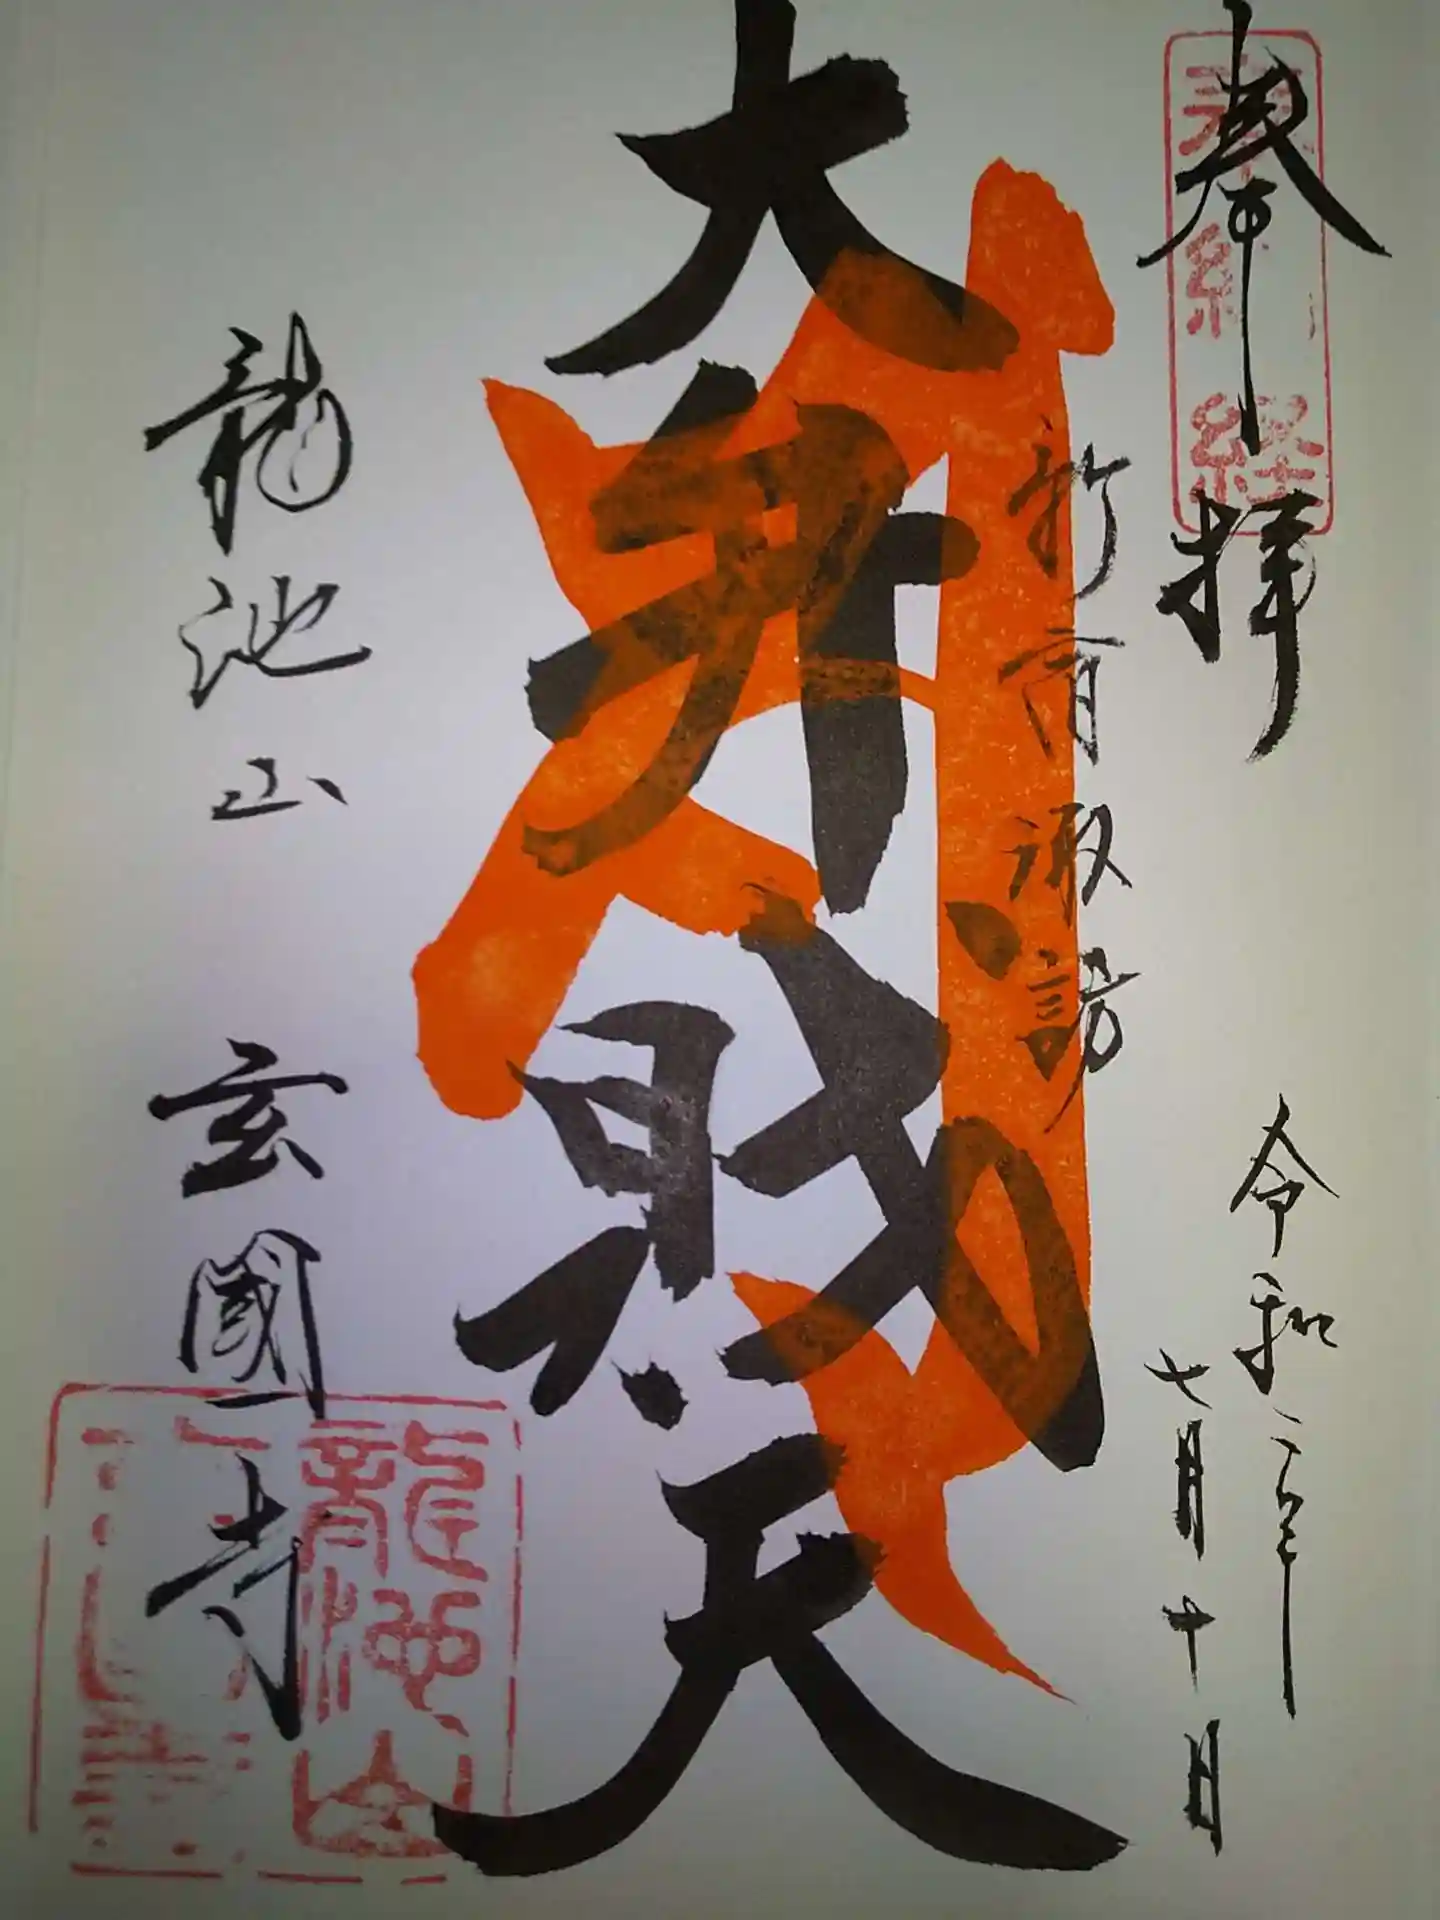 奉拝
令和二年
七月十日
新宿諏訪
大弁財天
龍池山 玄國寺
奉納経
龍池山